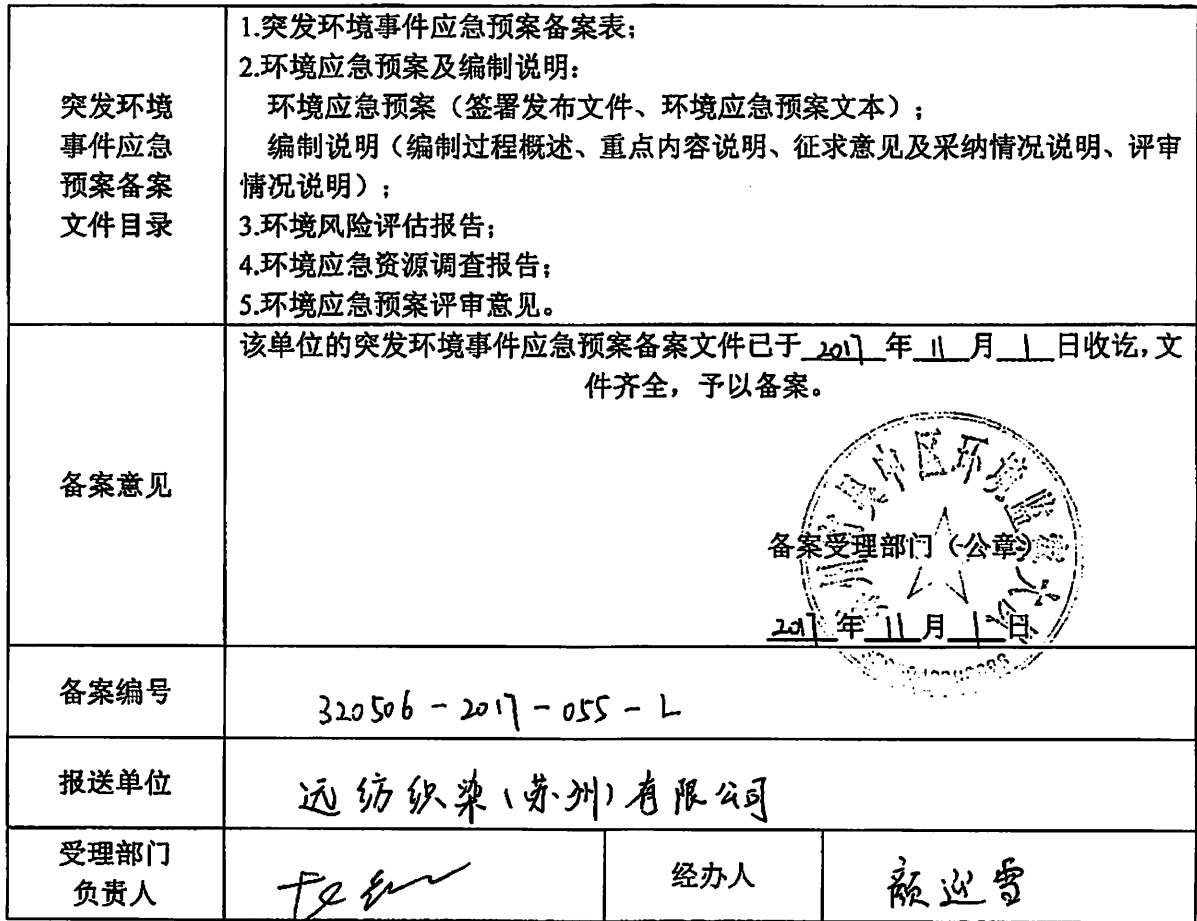 突发环境
事件应急
预案备案
文件目录
1.突发环境事件应急预案备案表；
2.环境应急预案及编制说明：
环境应急预案（签署发布文件、环境应急预案文本）；
编制说明（编制过程概述、重点内容说明、征求意见及采纳情况说明、评审
情况说明）；
3.环境风险评估报告；
4.环境应急资源调查报告；
5.环境应急预案评审意见。
备案意见
该单位的突发环境事件应急预案备案文件已于 2017 年 11 月 1 日收讫，文
件齐全，予以备案。
吴中区环境监察大
备案受理部门（公章）
2017 年 11 月 1 日
备案编号
320506-2017-055-L
报送单位
远纺织染（苏州）有限公司
受理部门
负责人
经办人
颜迎雪